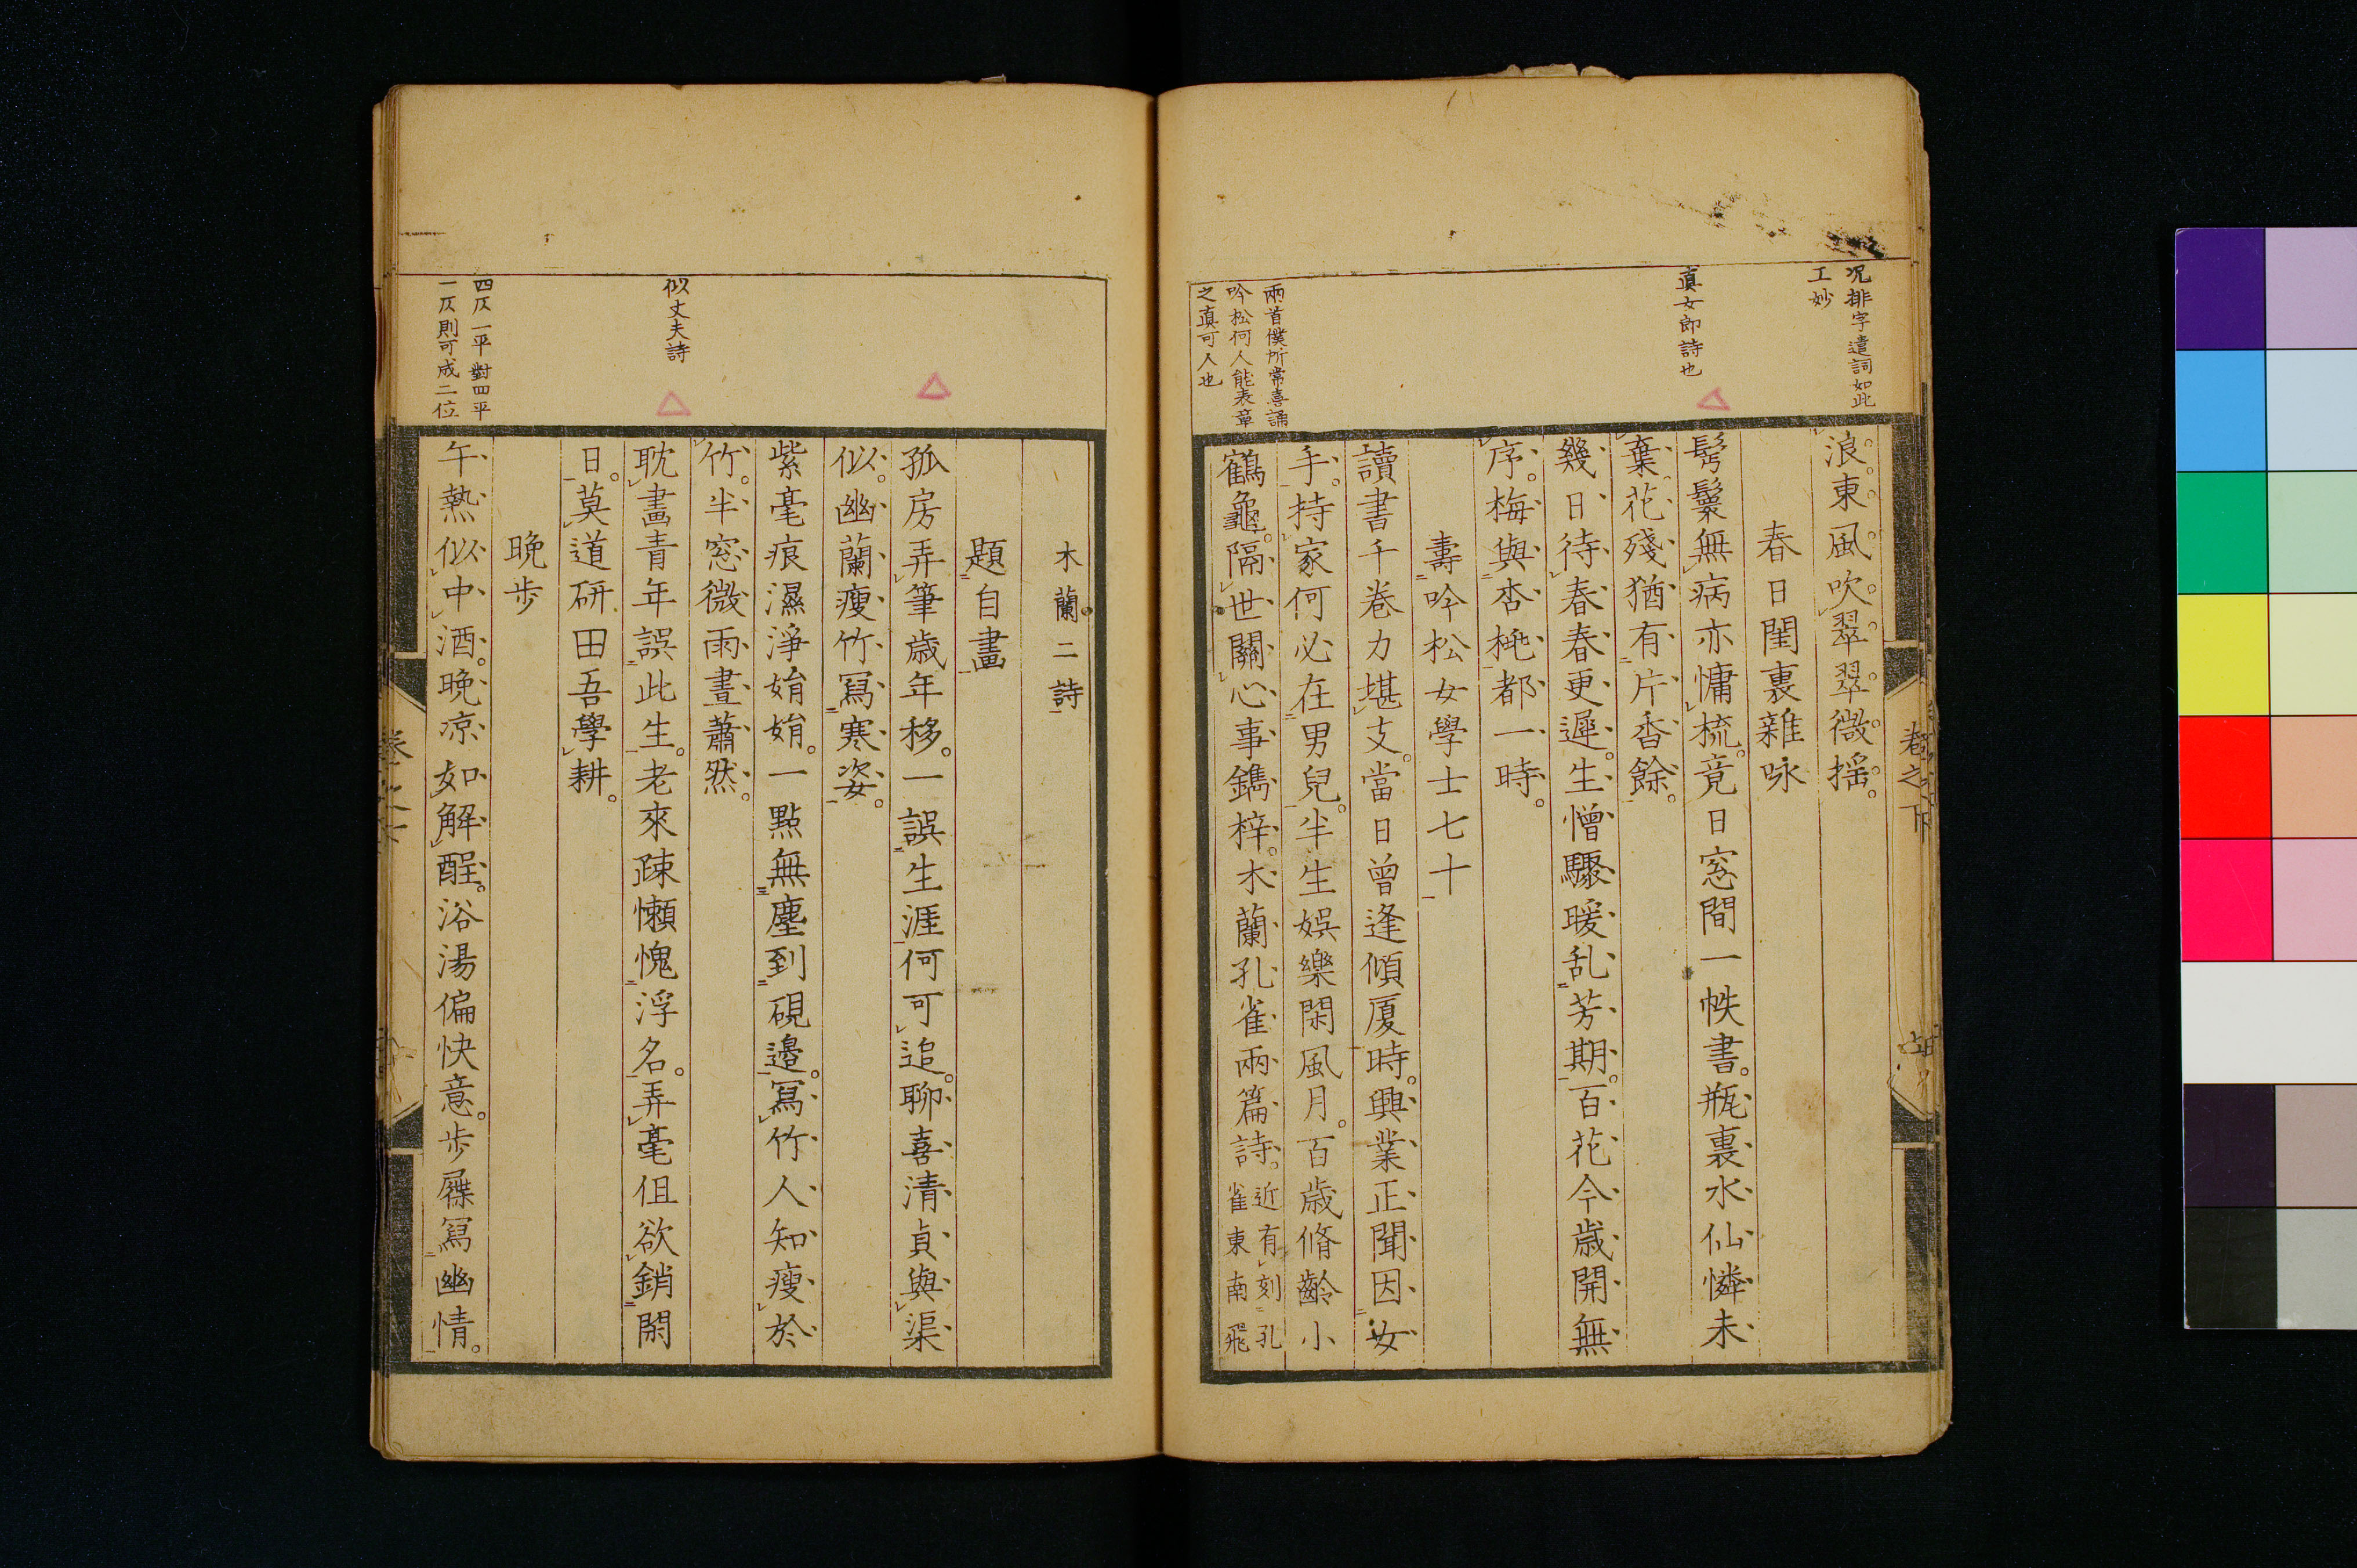 况排字遣詞如此
工妙
真女郎詩也
兩首僕所常喜誦
吟松何人能表章
之真可人也
浪。東。風。吹。翠。翠。微。揺。
春日閨裏雜咏
鬆鬟無病亦慵梳。竟日窓間一帙書。瓶裏水仙憐未
棄。花殘猶有片香餘。
幾日待春春更遲。生憎驟暖乱芳期。百花今歳開無
序。梅與杏桃都一時。
壽吟松女學士七十
讀書千卷力堪支。當日曾逢傾厦時。興業正聞因女
手。持家何必在男兒。半生娯樂閑風月。百歳脩齡小
鶴龜。隔世關心事鐫梓。木蘭孔雀兩篇詩。近有刻孔
雀東南飛
卷之下
木蘭二詩
題自畫
孤房弄筆歳年移。一誤生涯何可追。聊喜清貞與渠
似。幽蘭瘦竹冩寒姿。
紫毫痕濕淨娟娟。一點無塵到硯邉。冩竹人知瘦於
竹。半窓微雨晝蕭然。
耽畫青年誤此生。老來疎懶愧浮名。弄毫伹欲銷閑
日。莫道研田吾學耕。
晩歩
午熱似中酒。晩凉如解酲。浴湯偏快意。歩屧冩幽情。
似丈夫詩
四仄一平對四平
一仄則可成二位